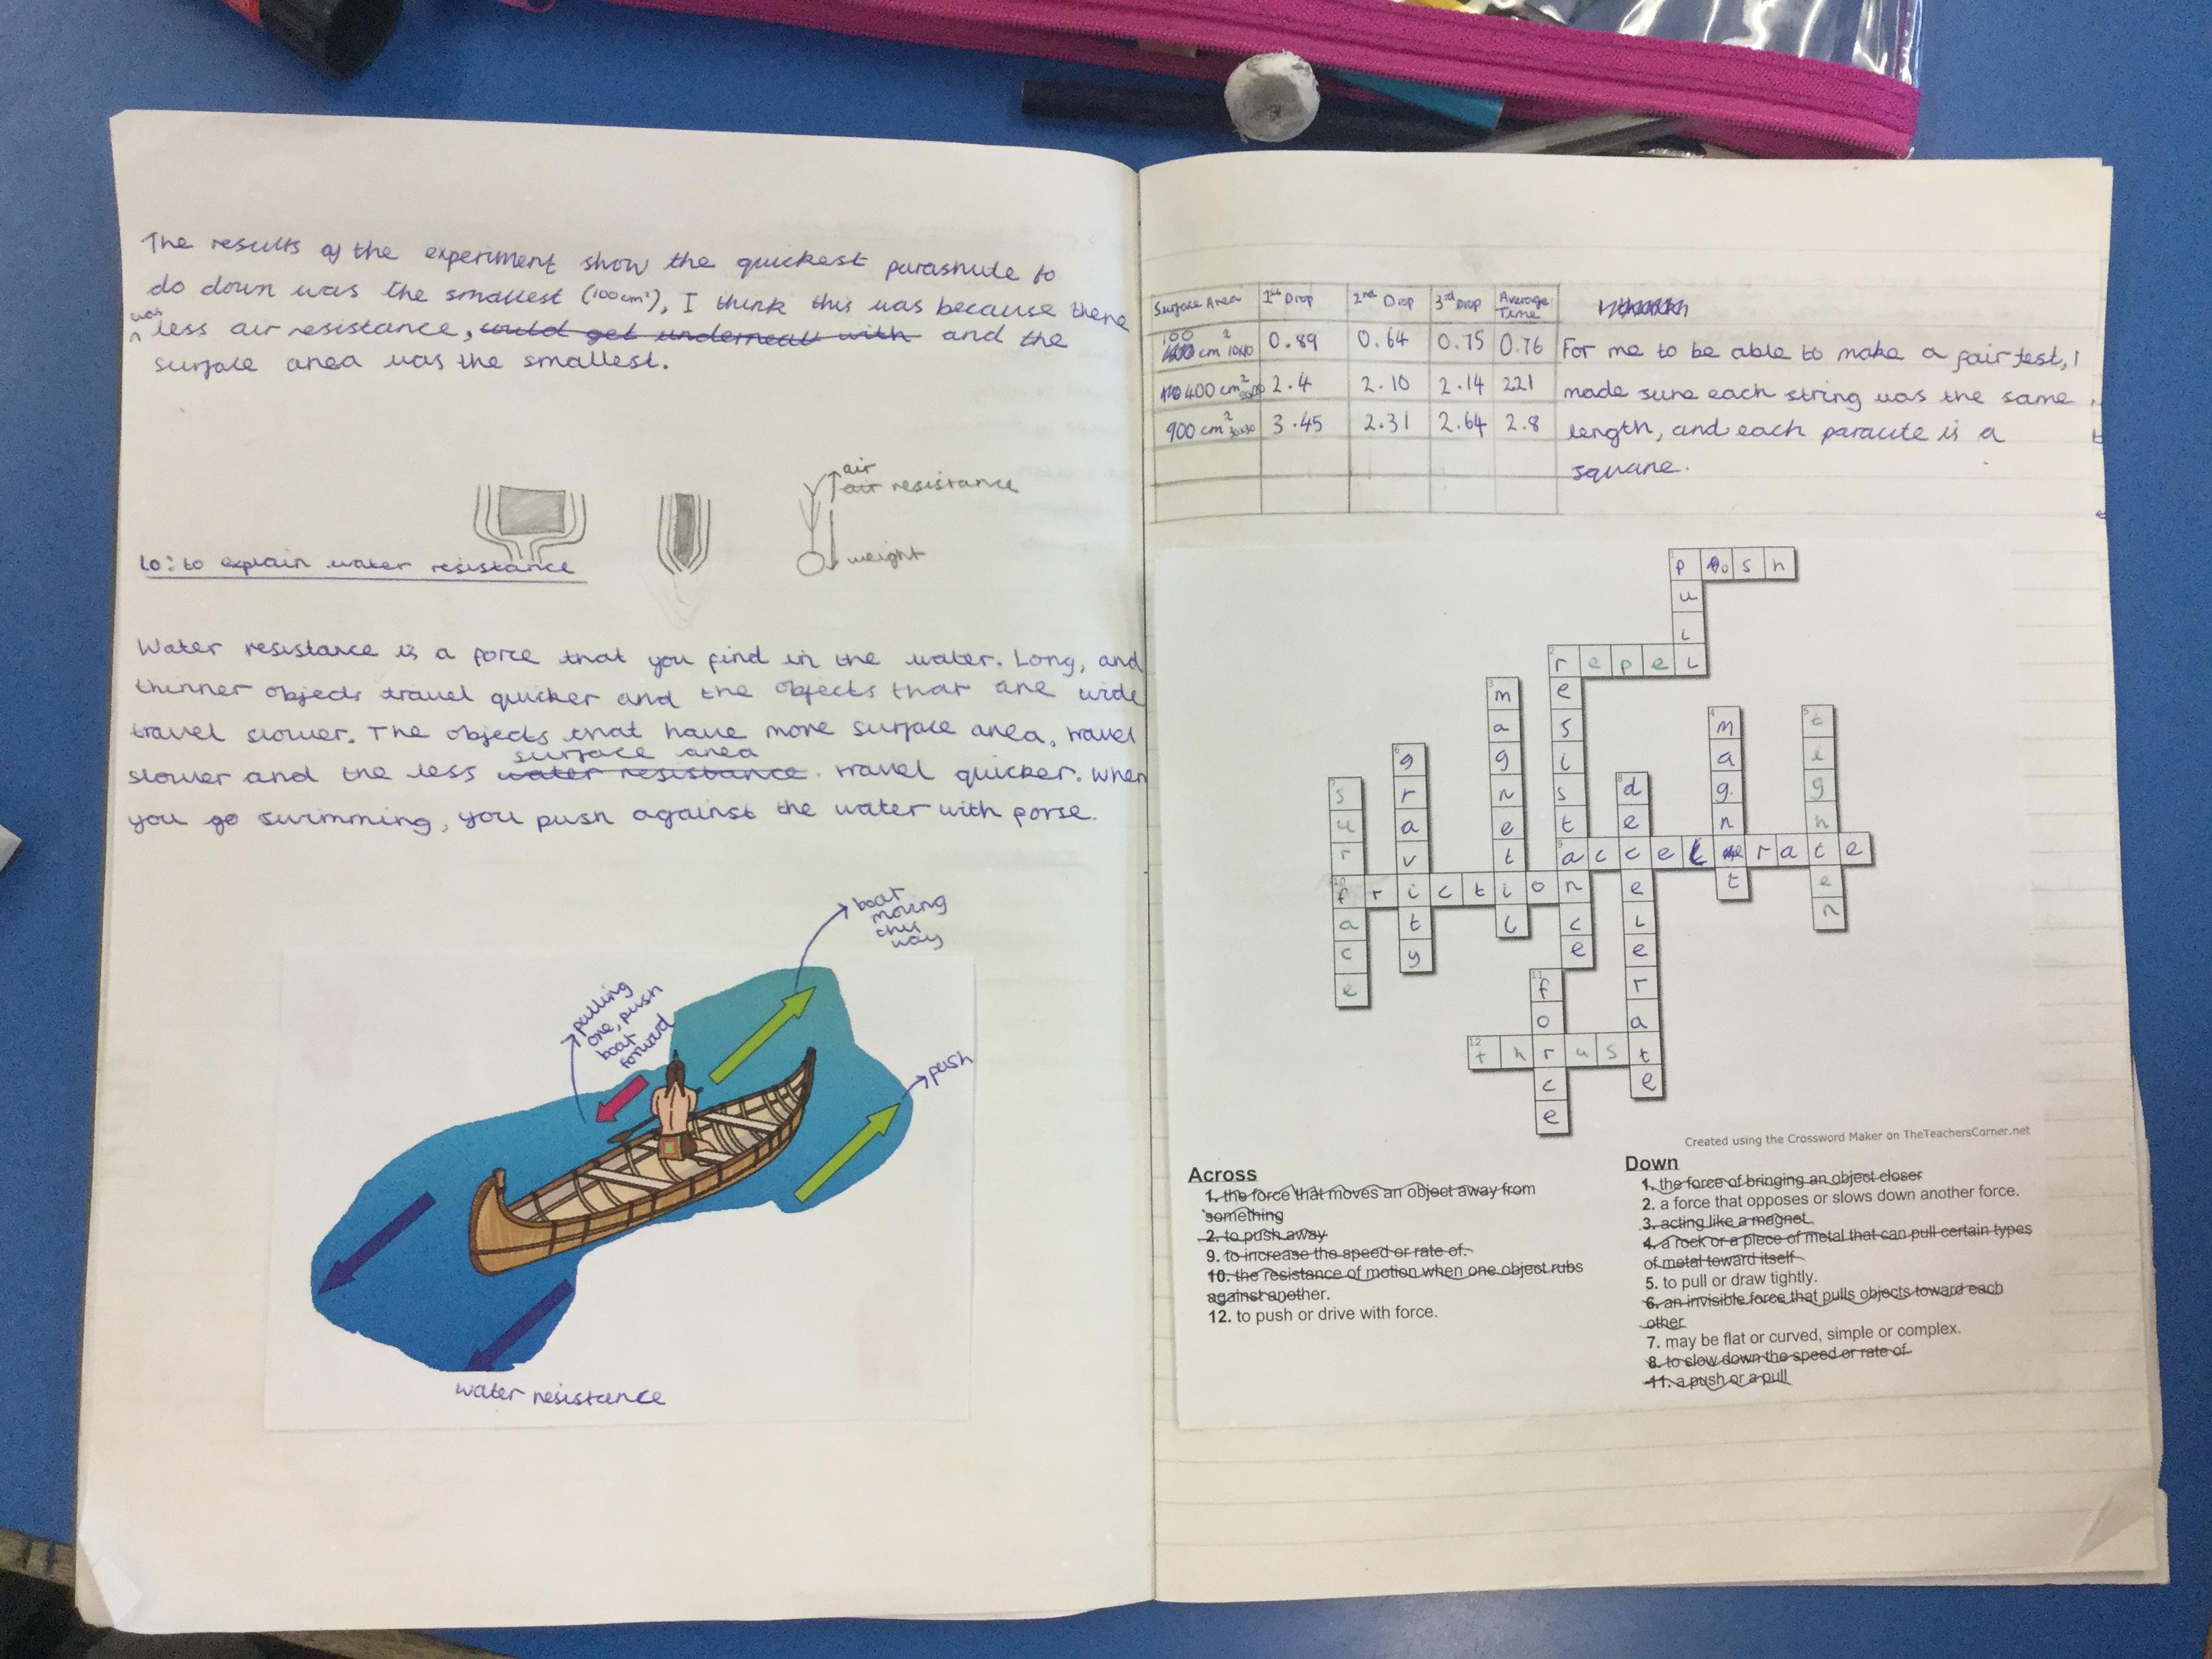 The results of the experiment show the quickest parashute to
do down was the smallest (100cm²), I think this was because there
was
less air resistance, could get underneath with and the
surface area was the smallest.
air
air resistance
weight
Lo: to explain water resistance
Water resistance is a force that you find in the water. Long, and
thinner objects travel quicker and the objects that are wide
travel slower. The objects that have more surface area, travel
surface area
slower and the less water resistance travel quicker. When
you go swimming, you push against the water with forse.
boat
moving
this
way
pulling
one, push
boat
forward
push
water resistance
Surface Area 1st Drop 2nd Drop 3rd Drop Average Time
100 cm² 10x10 0.89 0.64 0.75 0.76
400 cm² 20x20 2.4 2.10 2.14 2.21
900 cm² 30x30 3.45 2.31 2.64 2.8
For me to be able to make a fair test, I
made sure each string was the same
length, and each paraute is a
square.
push
pull
repel
resistance
magnetil
magnet
tighten
gravity
surface
decelerate
accelerate
friction
force
thrust
Created using the Crossword Maker on TheTeachersCorner.net
Across
1. the force that moves an object away from
something
2. to push away
9. to increase the speed or rate of.
10. the resistance of motion when one object rubs
against another.
12. to push or drive with force.
Down
1. the force of bringing an object closer
2. a force that opposes or slows down another force.
3. acting like a magnet.
4. a rock or a piece of metal that can pull certain types
of metal toward itself
5. to pull or draw tightly.
6. an invisible force that pulls objects toward each
other
7. may be flat or curved, simple or complex.
8. to slow down the speed or rate of
11. a push or a pull